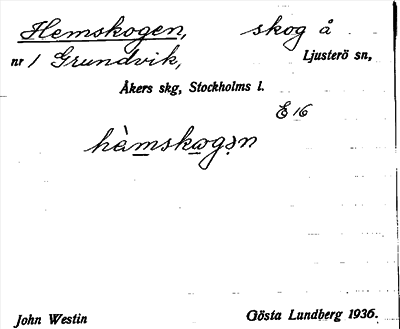 Hemskogen, skog å
nr 1 Grundvik, Ljusterö sn,
Åkers skg, Stockholms l.
E 16
hàmskωgən
John Westin Gösta Lundberg 1936.